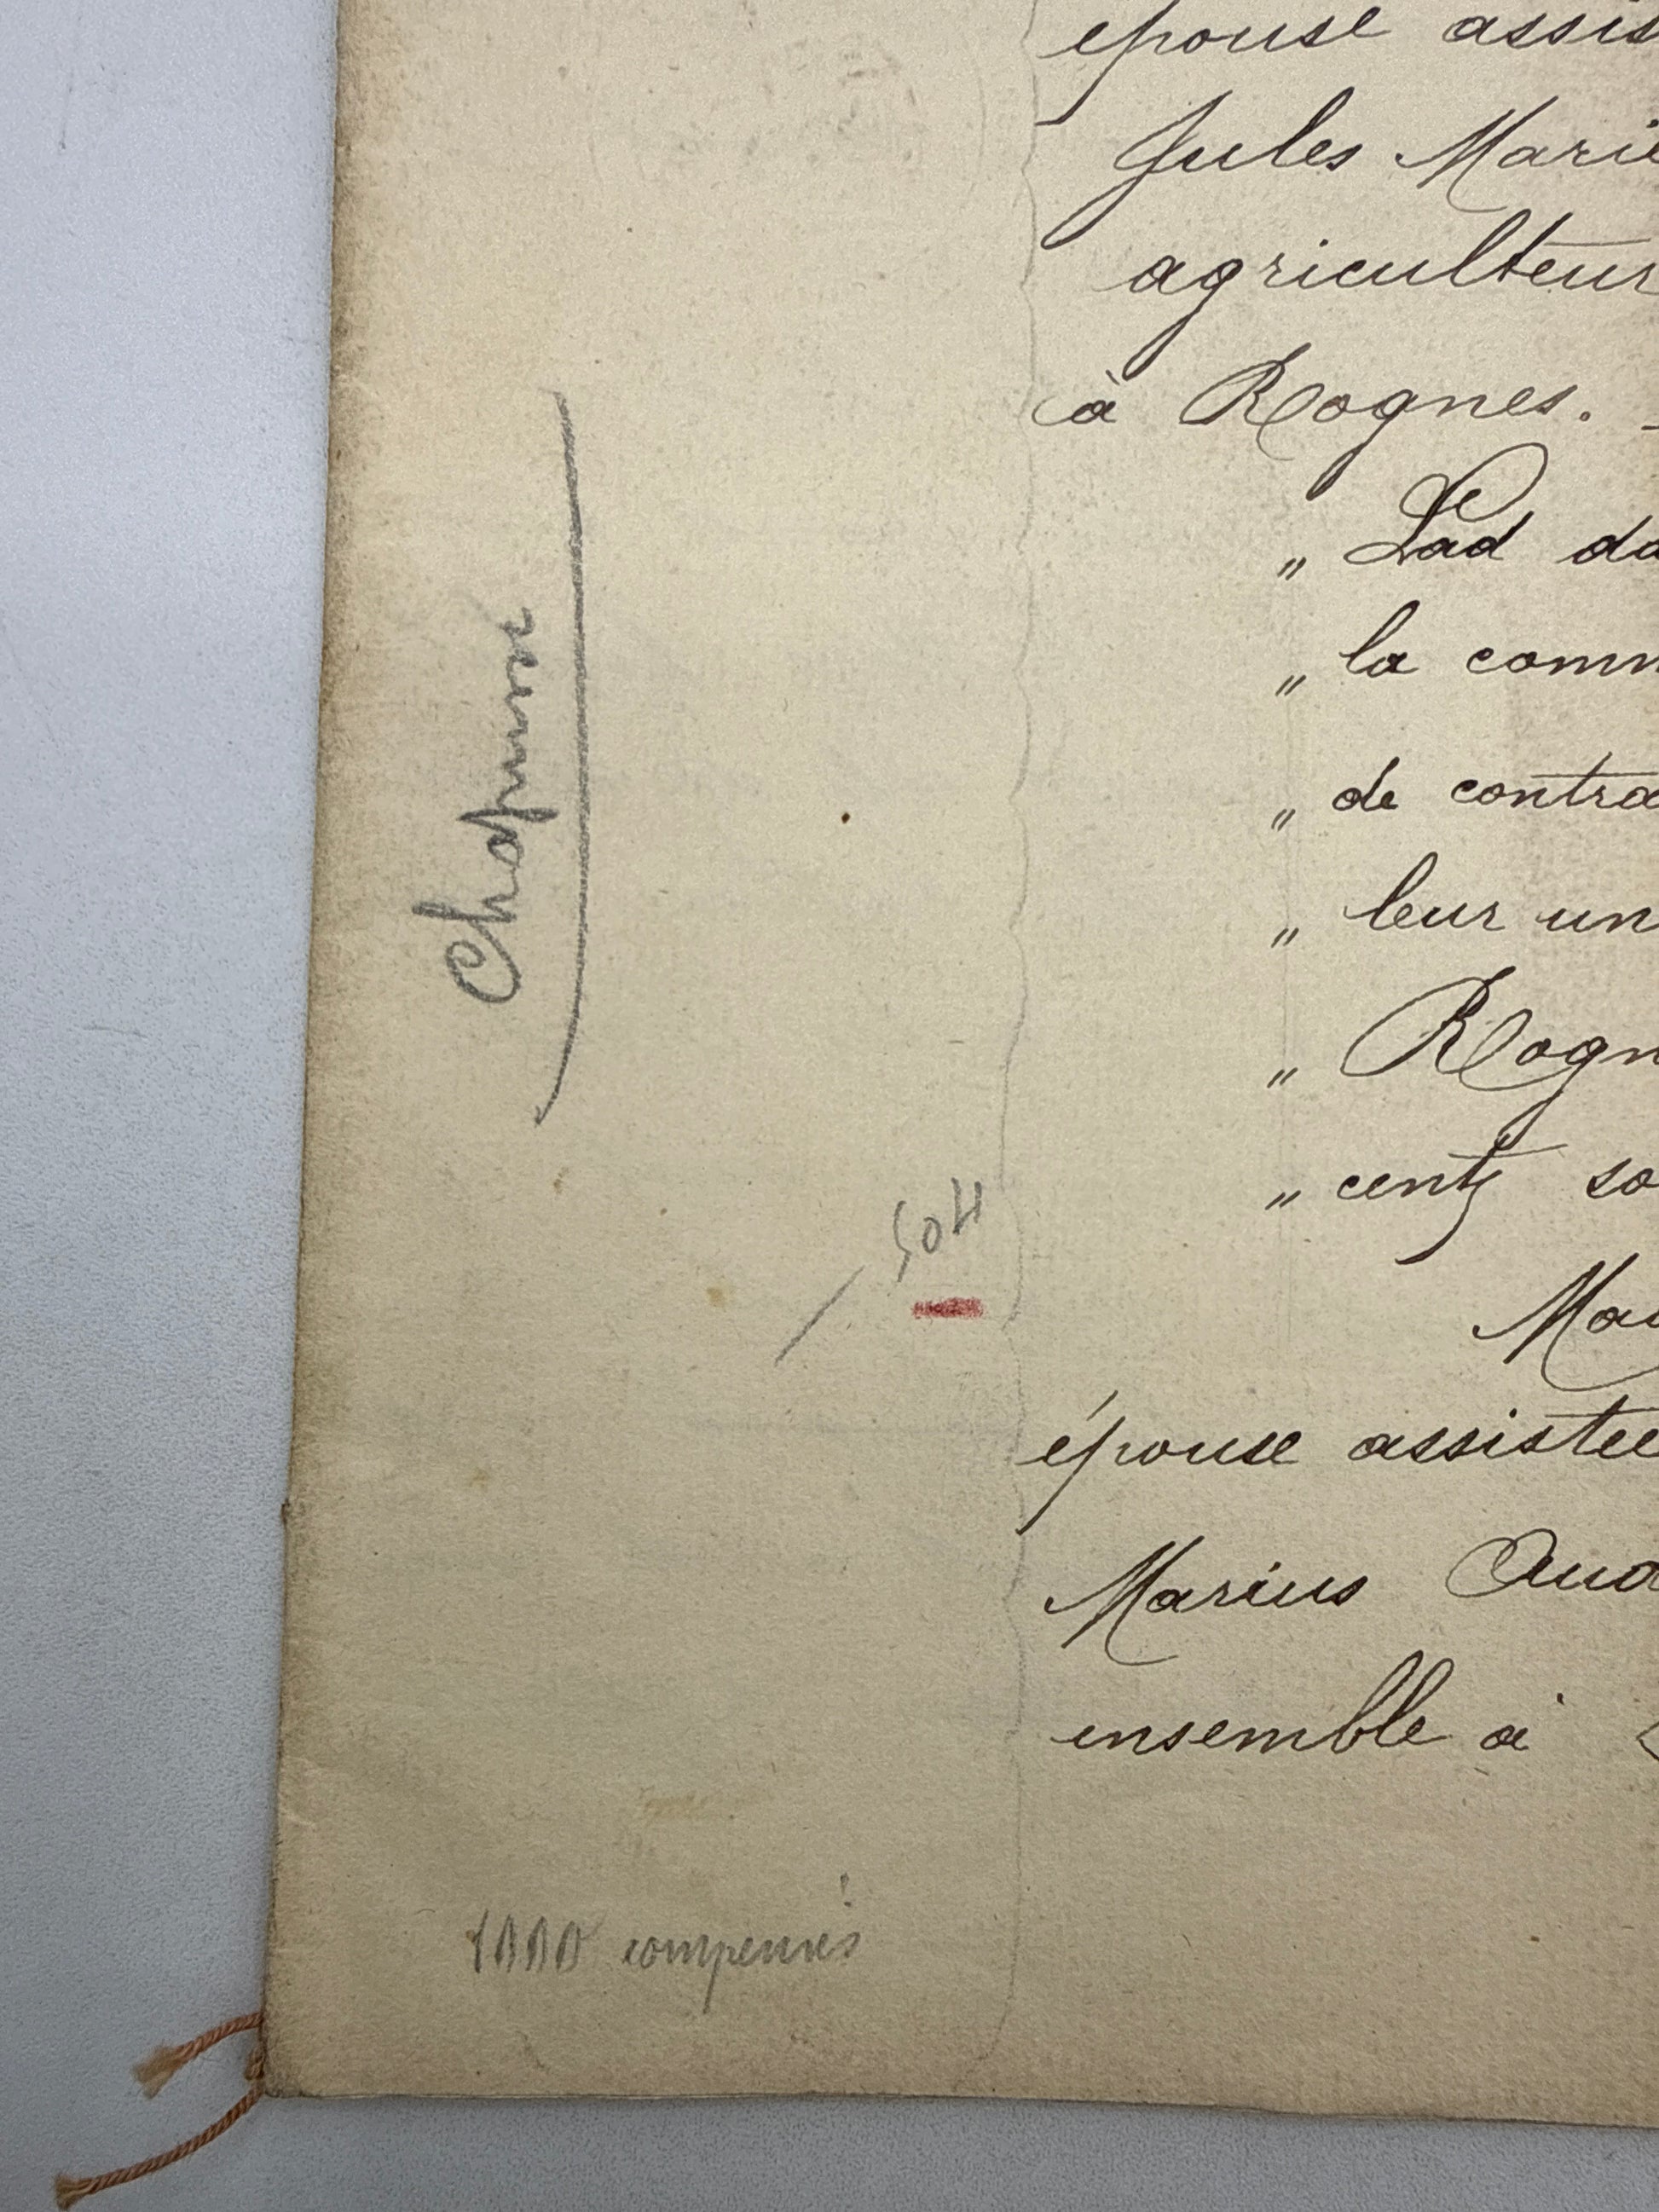 épouse assis
Jules Marie
agriculteur
à Rognes.
„ Lad da
„ la comm
„ de contra
„ leur un
„ Rogn
„ cents so
Ma
épouse assistée
Marius Aud
ensemble à
1000 compensés